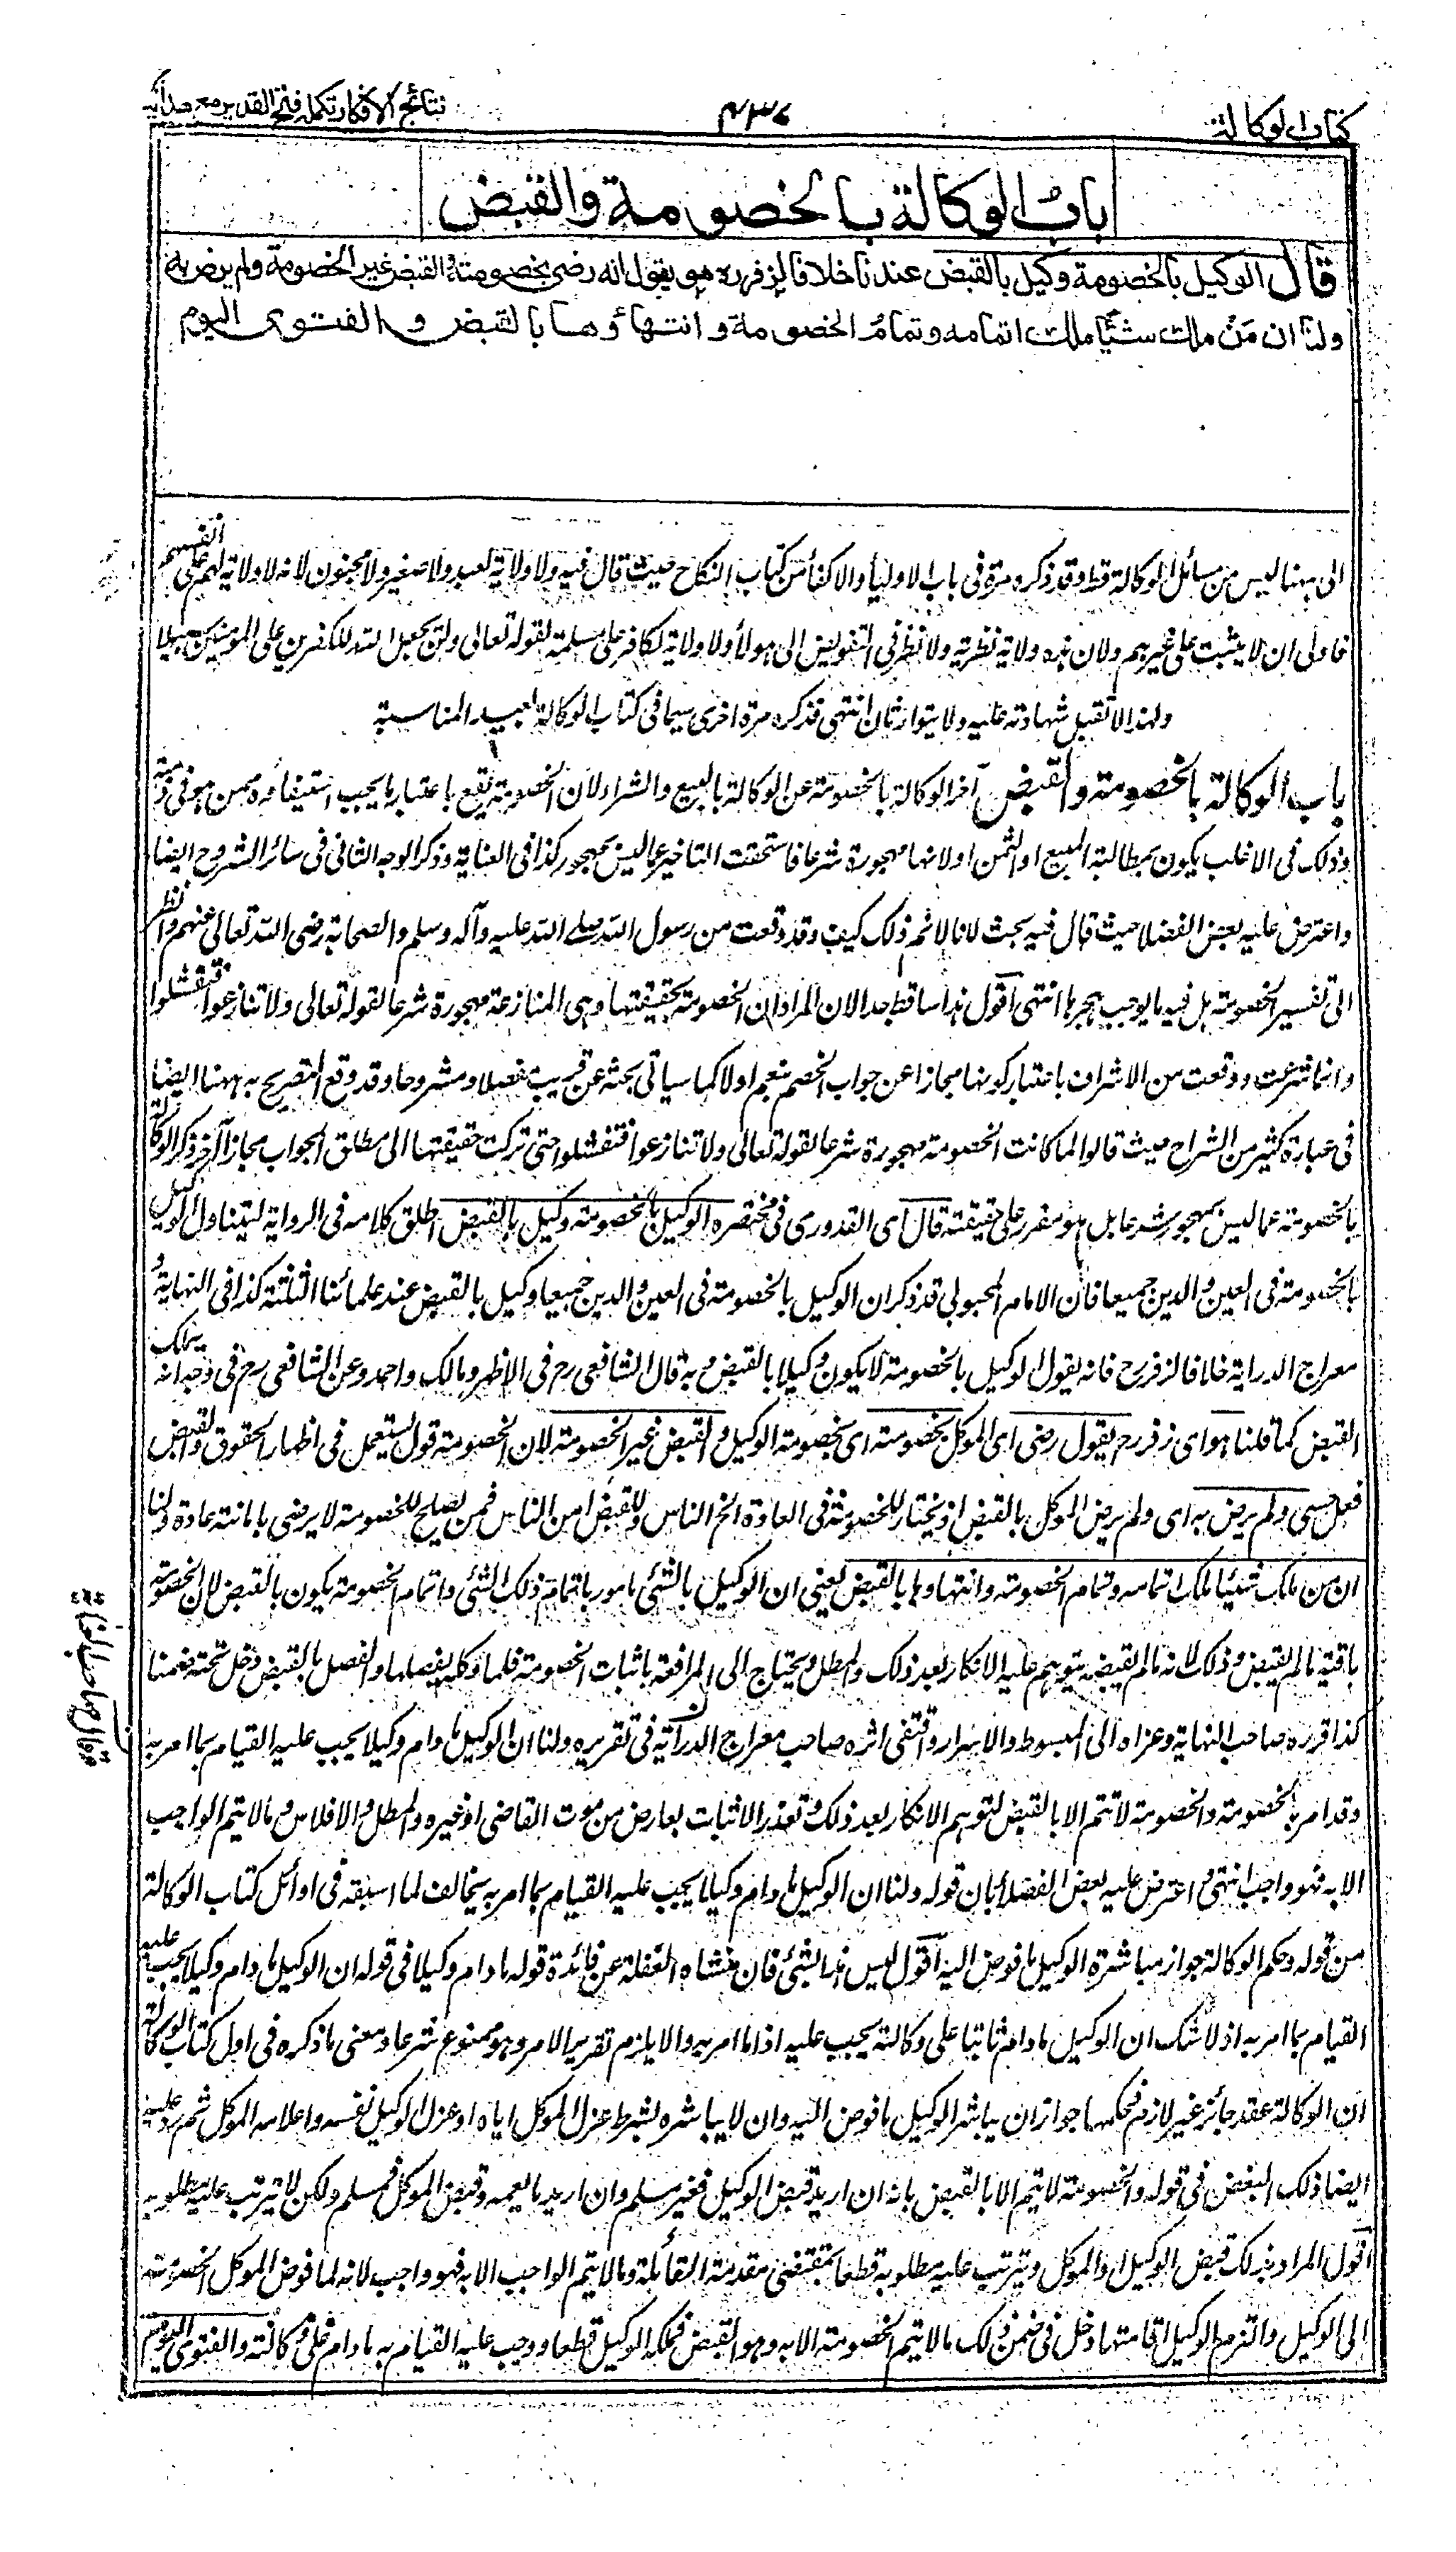 كتاب الوكالة
٤٣٧
نتائج الافكار تكمله فتح القدير مع هدايه
باب الوكالة بالخصومة والقبض
قال الوكيل بالخصومة وكيل بالقبض عندنا خلافا لزفر ره هو يقول انه رضى بخصومته والقبض غير الخصومة ولم يرض به
ولنا ان من ملك شيئا ملك اتمامه وتمام الخصومة وانتهاؤها بالقبض والفتوى اليوم
الى ههنا ليس من مسائل الوكالة قط وقد ذكره مرة فى باب الاولياء والاكفاء من كتاب النكاح حيث قال فيه ولا ولاية لعبد ولا صغير ولا مجنون لانه لا ولاية لهم على انفسهم
فاولى ان لا يثبت على غيرهم ولان هذه ولاية نظرية ولا نظر فى التفويض الى هؤلاء ولا ولاية لكافر على مسلمة لقوله تعالى ولن يجعل الله للكفرين على المؤمنين سبيلا
ولهذا لا تقبل شهادته عليه ولا يتوارثان انتهى فذكره مرة اخرى سيما فى كتاب الوكالة بعيد المناسبة
باب الوكالة بالخصومة والقبض آخر الوكالة بالخصومة عن الوكالة بالبيع والشراء لان الخصومة تقع باعتبار ما يجب استيفاءه ممن هو فى ذمته
وذلك فى الاغلب يكون بمطالبة المبيع او الثمن او لانها مهجورة شرعا فاستحقت التاخير عما ليس بمهجور كذا فى العناية وذكر الوجه الثانى فى سائر الشروح ايضا
واعترض عليه بعض الفضلا حيث قال فيه بحث لانا لا نم ذلك كيف وقد وقعت من رسول الله صلے الله عليه وآله وسلم والصحابة رضى الله تعالى عنهم وانظر
الى تفسير الخصومة هل فيه ما يوجب هجرها انتهى اقول هذا ساقط جدا لان المراد ان الخصومة بحقيقتها وهى المنازعة مهجورة شرعا لقوله تعالى ولا تنازعوا فتفشلوا
وانما شرعت ووقعت من الاشراف باعتبار كونها مجازا عن جواب الخصم بنعم او لا كما سياتى بحثه عن قريب مفصلا ومشروحا وقد وقع التصريح به ههنا ايضا
فى عبارة كثير من الشراح حيث قالوا لما كانت الخصومة مهجورة شرعا لقوله تعالى ولا تنازعوا فتفشلوا حتى تركت حقيقتها الى مطلق الجواب مجازا آخر ذكر الوكالة
بالخصومة عما ليس بمهجور شرعا بل هو مقرر على حقيقته قال اى القدورى فى مختصره الوكيل بالخصومة وكيل بالقبض اطلق كلامه فى الرواية ليتناول الوكيل
بالخصومة فى العين والدين جميعا فان الامام المحبوبى قد ذكر ان الوكيل بالخصومة فى العين والدين جميعا وكيل بالقبض عند علمائنا الثلثة كذا فى النهاية و
معراج الدراية خلافا لزفر رح فانه يقول الوكيل بالخصومة لا يكون وكيلا بالقبض وبه قال الشافعى رح فى الاظهر ومالك واحمد وعن الشافعى رح فى وجه انه يملك
القبض كما قلنا هو اى زفر رح يقول رضى اى الموكل بخصومته اى بخصومة الوكيل والقبض غير الخصومة لان الخصومة قول يستعمل فى اظهار الحقوق والقبض
فعل حسى ولم يرض به اى ولم يرض الموكل بالقبض اذ يختار للخصومة فى العادة الخ الناس وللقبض امن الناس فمن يصلح للخصومة لا يرضى بامانته عادة ولنا
ان من ملك شيئا ملك اتمامه وتمام الخصومة وانتهاوها بالقبض يعنى ان الوكيل بالشئى مامور باتمام ذلك الشئى واتمام الخصومة يكون بالقبض لان الخصومة
باقية ما لم يقبض وذلك لانه ما لم يقبض يتوهم عليه الانكار بعد ذلك والمطل ويحتاج الى المرافعة باثبات الخصومة فلما وكله بفصلها والفصل بالقبض دخل تحته ضمنا
كذا قرره صاحب النهاية وعزاه الى المبسوط والاسرار واقتفى اثره صاحب معراج الدراية فى تقريره ولنا ان الوكيل ما دام وكيلا يجب عليه القيام بما امر به
وقد امر بالخصومة والخصومة لا تتم الا بالقبض لتوهم الانكار بعد ذلك وتعذر الاثبات بعارض من موت القاضى او غيره والمطل والافلاس وما لا يتم الواجب
الا به فهو واجب انتهى واعترض عليه بعض الفضلاء بان قوله ولنا ان الوكيل ما دام وكيلا يجب عليه القيام بما امر به يخالف لما اسبقه فى اوائل كتاب الوكالة
من قوله وحكم الوكالة جواز مباشرة الوكيل ما فوض اليه اقول ليس هذا بشئى فان منشاه الغفلة عن فائدة قوله ما دام وكيلا فى قوله ان الوكيل ما دام وكيلا يجب عليه
القيام بما امر به اذ لا شك ان الوكيل ما دام ثابتا على وكالته يجب عليه اذا ما امر به والا يلزم تقرير الامر وهو ممنوع شرعا ومعنى ما ذكره فى اول كتاب الوكالة
ان الوكالة عقد جائز غير لازم فحكمها جواز ان يباشر الوكيل ما فوض اليه وان لا يباشره بشرط عزل الموكل اياه او عزل الوكيل نفسه واعلامه الموكل ثم رد عليه
ايضا ذلك البعض فى قوله والخصومة لا تتم الا بالقبض بانه ان اريد قبض الوكيل فغير مسلم وان اريد ما يعمه وقبض الموكل فمسلم ولكن لا يترتب عليه مطلوبه
اقول المراد بذلك قبض الوكيل او الموكل ويترتب عليه مطلوبه قطعا بمقتضى مقدمته القائلة وما لا يتم الواجب الا به فهو واجب لانه لما فوض الموكل الخصومة
الى الوكيل والتزم الوكيل اقامتها دخل فى ضمن ذلك ما لا يتم الخصومة الا به وهو القبض فملكه الوكيل قطعا ووجب عليه القيام به ما دام على وكالته والفتوى اليوم